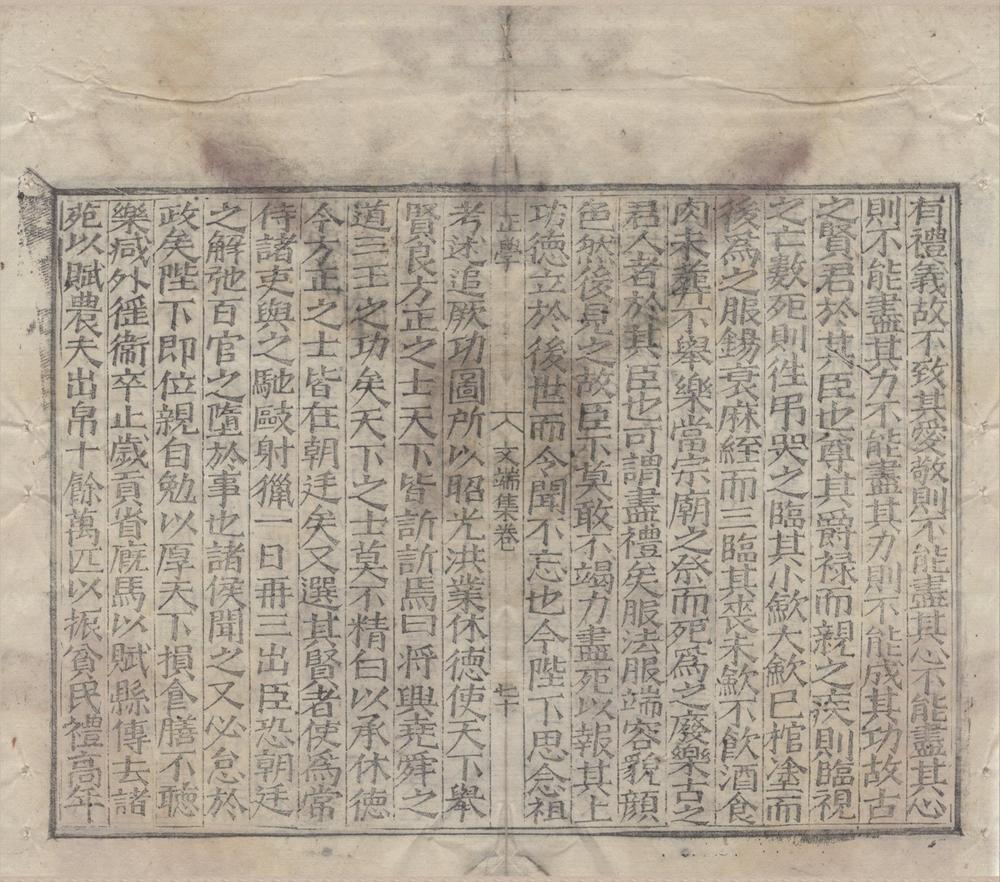 有禮義故不致其愛敬則不能盡其心不能盡其心
則不能盡其力不能盡其力則不能成其功故古
之賢君於其臣也尊其爵禄而親之疾則臨視
之亡數死則徃弔哭之臨其小歛大歛已棺塗而
後爲之服錫衰麻絰而三臨其喪未歛不飮酒食
肉未葬不舉樂當宗廟之祭而死爲之廢樂古之
君人者於其臣也可謂盡禮矣服法服端容貌顔
色然後見之故臣下莫敢不竭力盡死以報其上
功德立於後世而令聞不忘也今陛下思念祖
正學 文端集卷 七十
考述追厥功圖所以昭光洪業休徳使天下舉
賢良方正之士天下皆訢訢焉曰将興堯舜之
道三王之功矣天下之士莫不精白以承休徳
今方正之士皆在朝廷矣又選其賢者使爲常
侍諸吏與之馳敺射獵一日再三出臣恐朝廷
之解弛百官之墮於事也諸侯聞之又必怠於
政矣陛下即位親自勉以厚天下損食膳不聴
樂减外徭衞卒止歲貢省廐馬以賦縣傳去諸
苑以賦農夫出帛十餘萬匹以振貧民禮高年